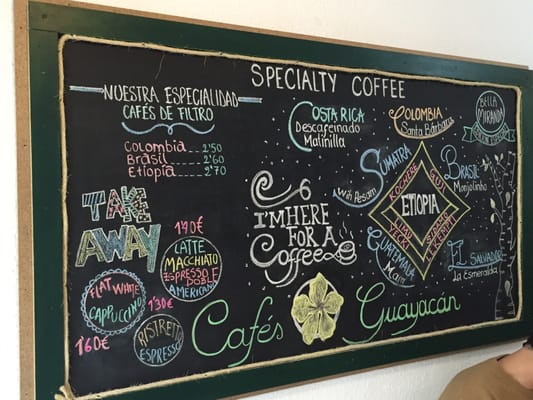 SPECIALTY COFFEE
NUESTRA ESPECIALIDAD
CAFÉS DE FILTRO
Colombia 2'50
Brasil 2'60
Etiopía 2'70
TAKE
AWAY
1'90€
LATTE
MACCHIATO
ESPRESSO
DOBLE
AMERICANO
FLAT WHITE
CAPPUCCINO
1'60€
1'30€
RISTRETTO
ESPRESSO
COSTA RICA
Descafeinado
Malinilla
COLOMBIA
Santa Bárbara
BELLA
MIRANDA
SUMATRA
Wih Pesam
BRASIL
Monjolinho
KOCHERE
GUJI
ETIOPIA
LIMU
SIDAMO
LEKEMPTI
GUATEMALA
EL SALVADOR
La Esmeralda
I'M HERE
FOR A
Coffee
Cafés Guayacán